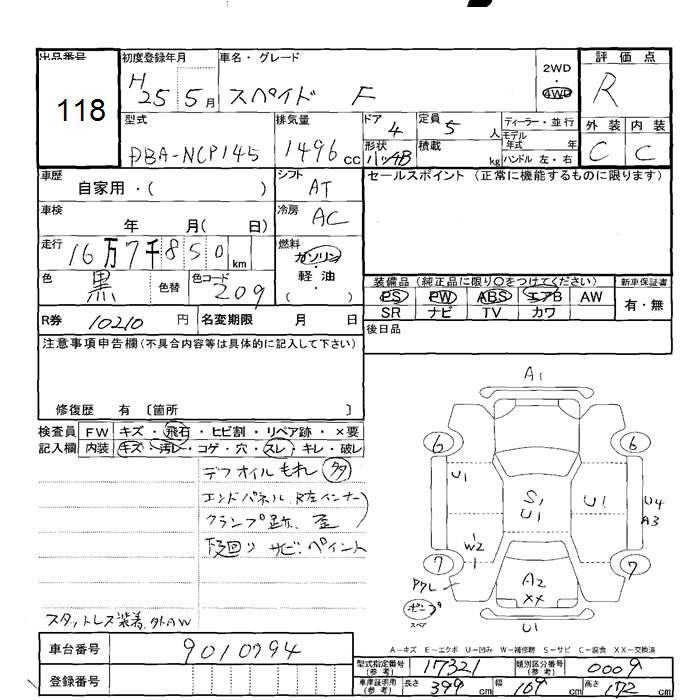 出品番号 118
初度登録年月 H25 5月
車名・グレード スペイド F
2WD・4WD
評価点 R
外装 C 内装 C
型式 DBA-NCP145
排気量 1496 cc
ドア 4
形状 ハッチB
定員 5 人
積載 kg
ディーラー・並行
モデル年式 年
ハンドル 左・右
車歴 自家用・( )
シフト AT
セールスポイント (正常に機能するものに限ります)
車検 年 月( 日)
冷房 AC
走行 16万7千850 km
燃料 ガソリン・軽油・( )
色 黒 色替 色コード 209
装備品 (純正品に限り○をつけてください) 新車保証書
PS PW ABS エアB AW 有・無
SR ナビ TV カワ
R券 10210 円 名変期限 月 日
後日品
注意事項申告欄(不具合内容等は具体的に記入して下さい)
修復歴 有 〔箇所 〕
検査員 FW キズ・飛石・ヒビ割・リペア跡・×要
記入欄 内装 キズ・汚レ・コゲ・穴・スレ・キレ・破レ
デフオイルもれ 多
エンドパネル、R左インナー)
クランプ跡、歪
下廻り サビ、ペイント
スタットレス装着、外AW
A1
6 6
U1 S1 U1 U1 U4
A3
W2
1
7 7
アクレ A2
XX
U1
A-キズ E-エクボ U-凹み W-補修跡 S-サビ C-腐食 XX-交換済
車台番号 9010794
登録番号
型式指定番号(参考) 17321 類別区分番号(参考) 0009
車庫証明用(参考) 長さ 399 cm 幅 169 cm 高さ 172 cm